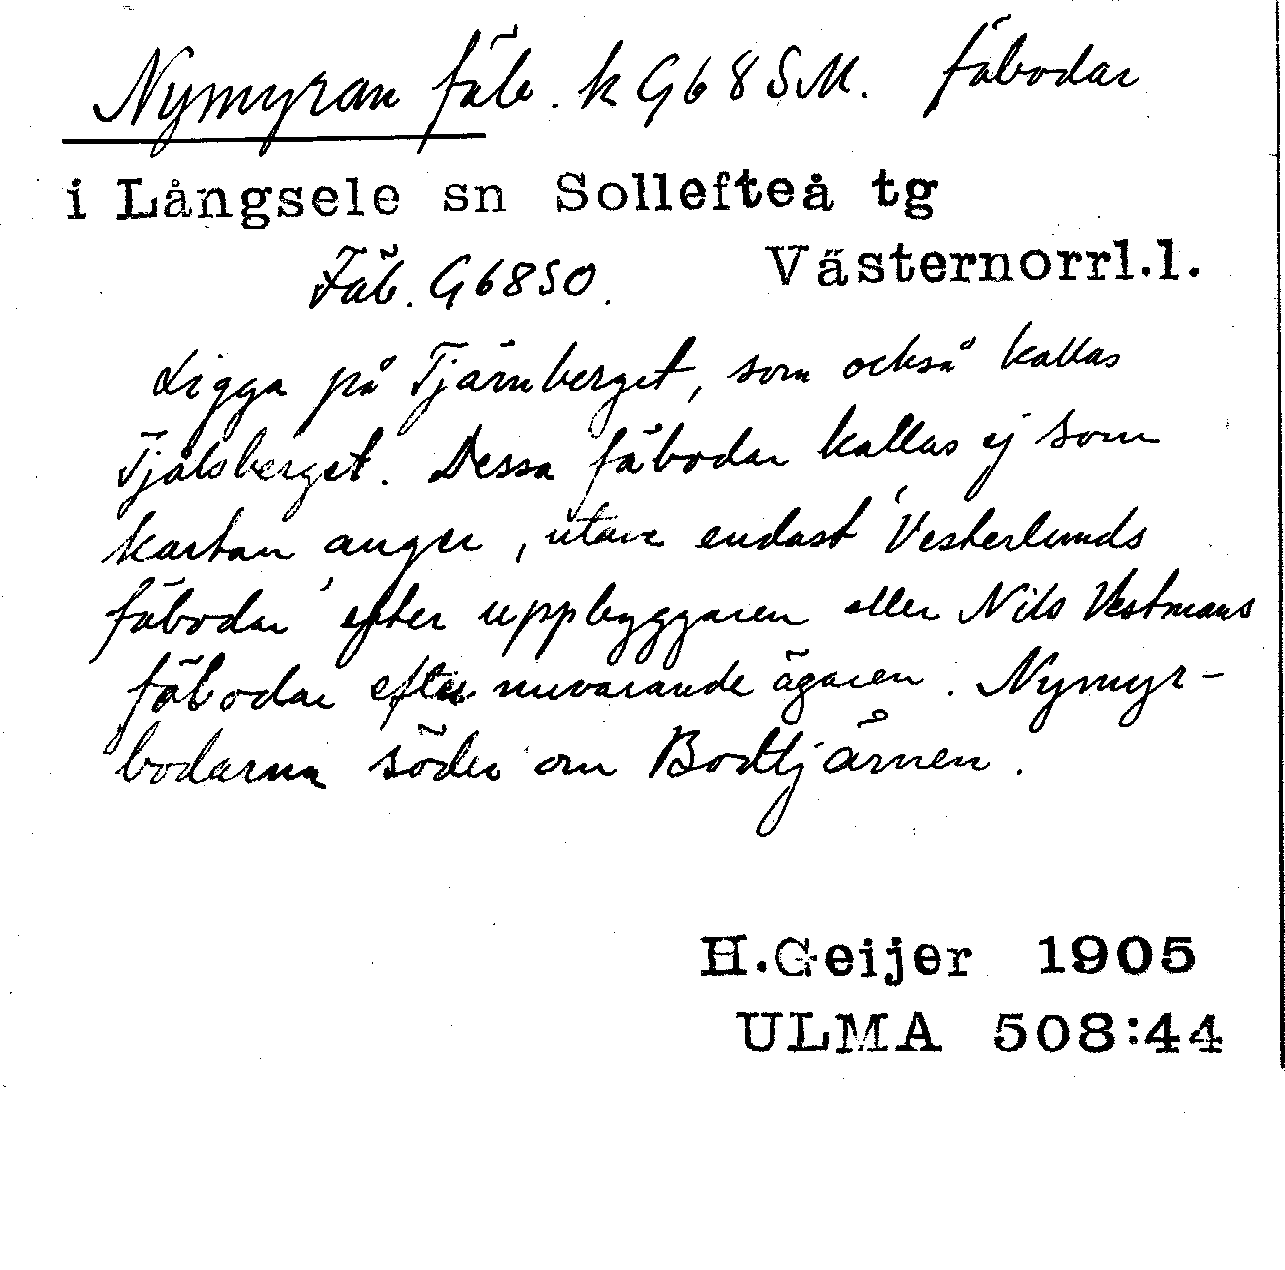 Nymyran fäb. k G68SM. fäbodar
i Långsele sn Sollefteå tg
Fäb. G68SO. Västernorrl.l.
Ligga på Tjärnberget, som också kallas
Tjälsberget. Dessa fäbodar kallas ej som
kartan anger, utan endast 'Vesterlunds
fäbodar' efter uppbyggaren eller Nils Vestmans
fäbodar efter nuvarande ägaren. Nymyr-
bodarna söder om Bodtjärnen.
H.Geijer 1905
ULMA 508:44